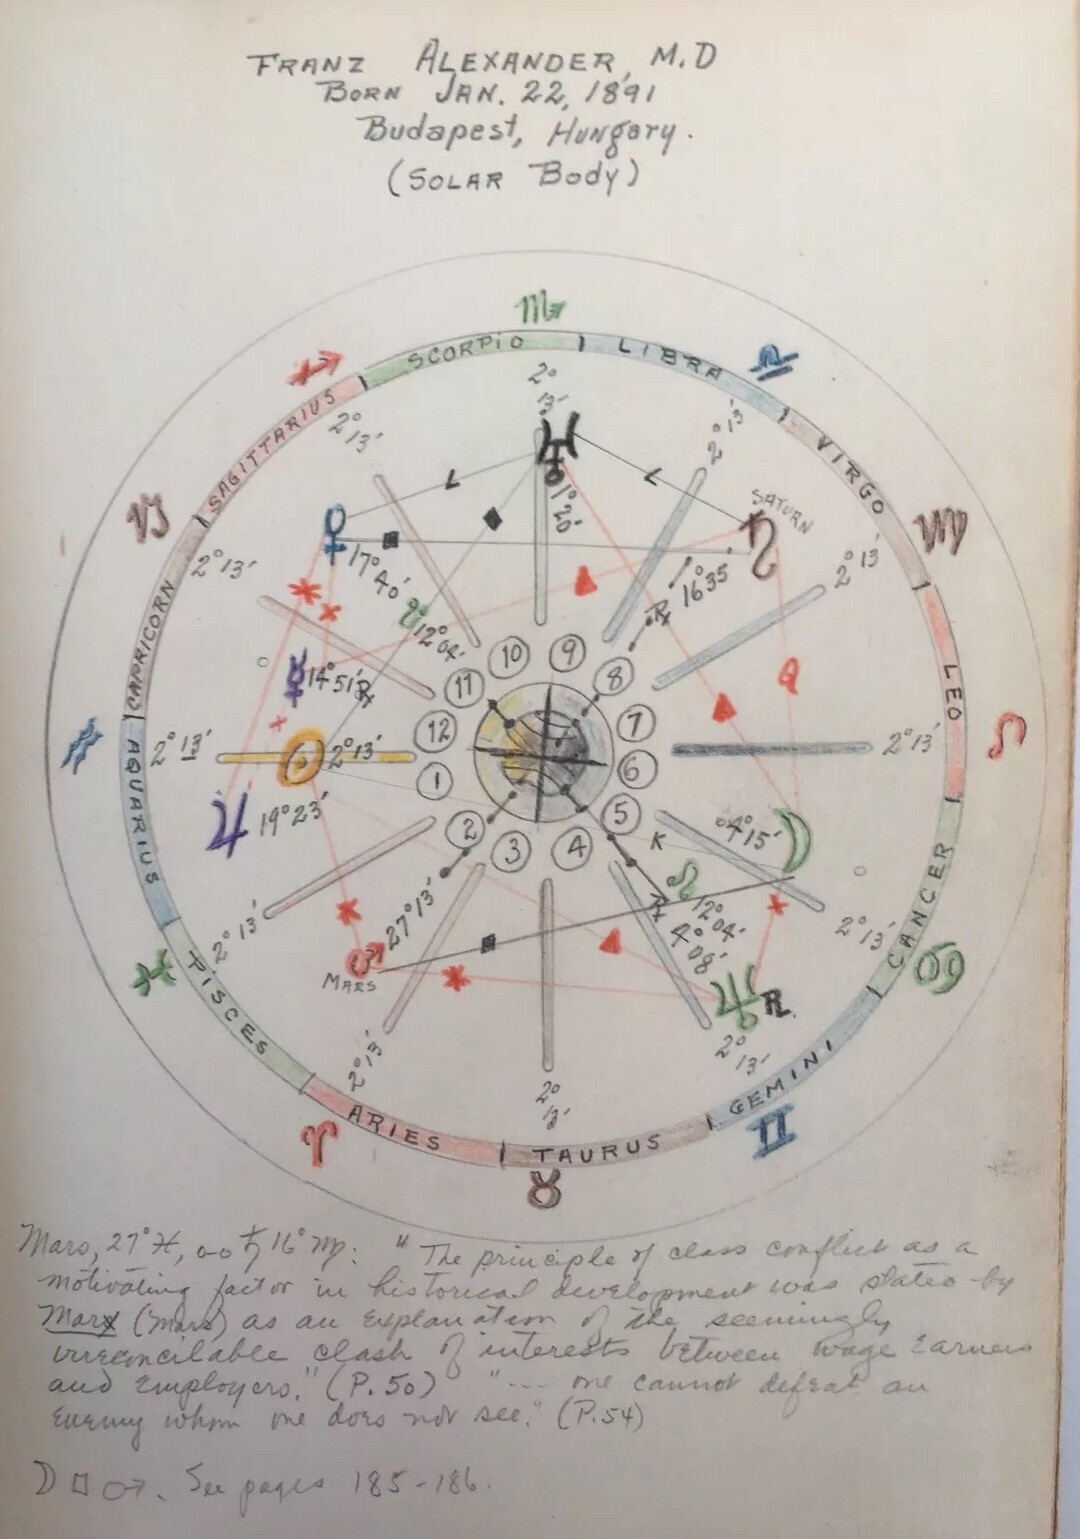 FRANZ ALEXANDER, M.D
BORN JAN. 22, 1891
Budapest, Hungary.
(SOLAR Body)
♏
SCORPIO
LIBRA
♎
♐
SAGITTARIUS
VIRGO
♍
♑
CAPRICORN
LEO
♌
♒
AQUARIUS
CANCER
♋
♓
PISCES
GEMINI
♊
♈
ARIES
TAURUS
♉
2° 13'
2° 13'
2° 13'
♅
1° 20'
L
L
SATURN
♄
℞ 16° 35'
♀
17° 40'
☋ 12° 04'
2° 13'
2° 13'
☿ 14° 51' ℞
10
9
11
8
12
7
1
6
2
5
3
4
2° 13'
☉ 2° 13'
2° 13'
♃ 19° 23'
K
4° 15' ☽
☊ 12° 04'
℞ 4° 08'
2° 13'
2° 13'
27° 13'
♂
MARS
♆ R.
2° 13'
2° 13'
2° 13'
Mars, 27° ♓, ☍ ♄ 16° ♍: "The principle of class conflict as a
motivating factor in historical development was stated by
Marx (Mars) as an explanation of the seemingly
irreconcilable clash of interests between wage earners
and employers." (P. 50) "--- one cannot defeat an
enemy whom one does not see." (P. 54)
☽ □ ♂. See pages 185-186.